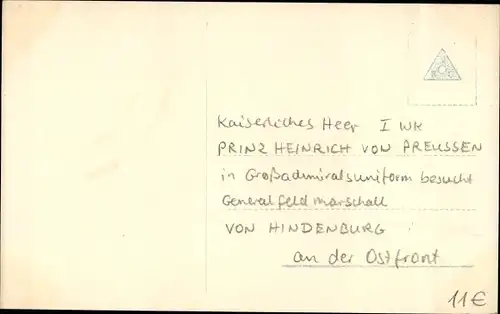 Kaiserliches Heer I WK
PRINZ HEINRICH VON PREUSSEN
in Großadmiralsuniform besucht
Generalfeldmarschall
VON HINDENBURG
an der Ostfront
11€